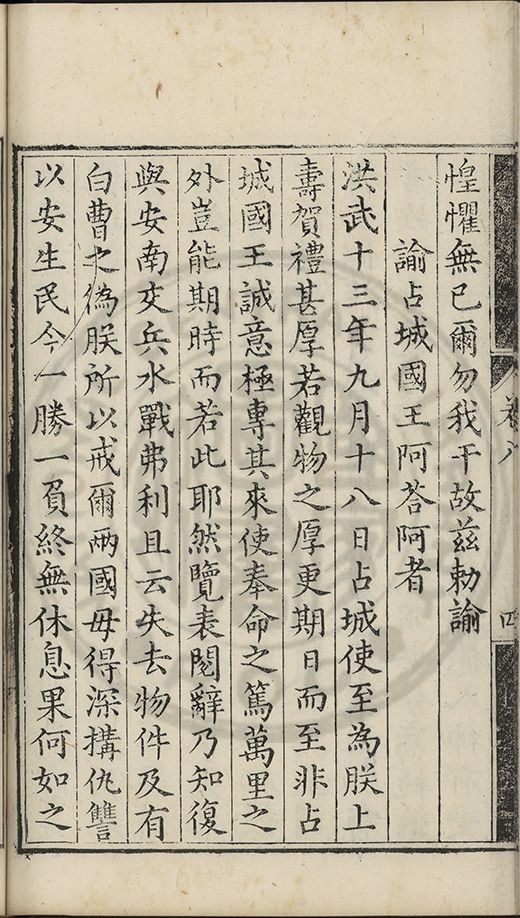 惶懼無已爾勿我干故茲勅諭
諭占城國王阿荅阿者
洪武十三年九月十八日占城使至為朕上
壽賀禮甚厚若觀物之厚更期日而至非占
城國王誠意極專其來使奉命之篤萬里之
外豈能期時而若此耶然覽表閱辭乃知復
與安南交兵水戰弗利且云失去物件及有
白曹之偽朕所以戒爾兩國毋得深搆仇讐
以安生民今一勝一負終無休息果何如之
卷八
四